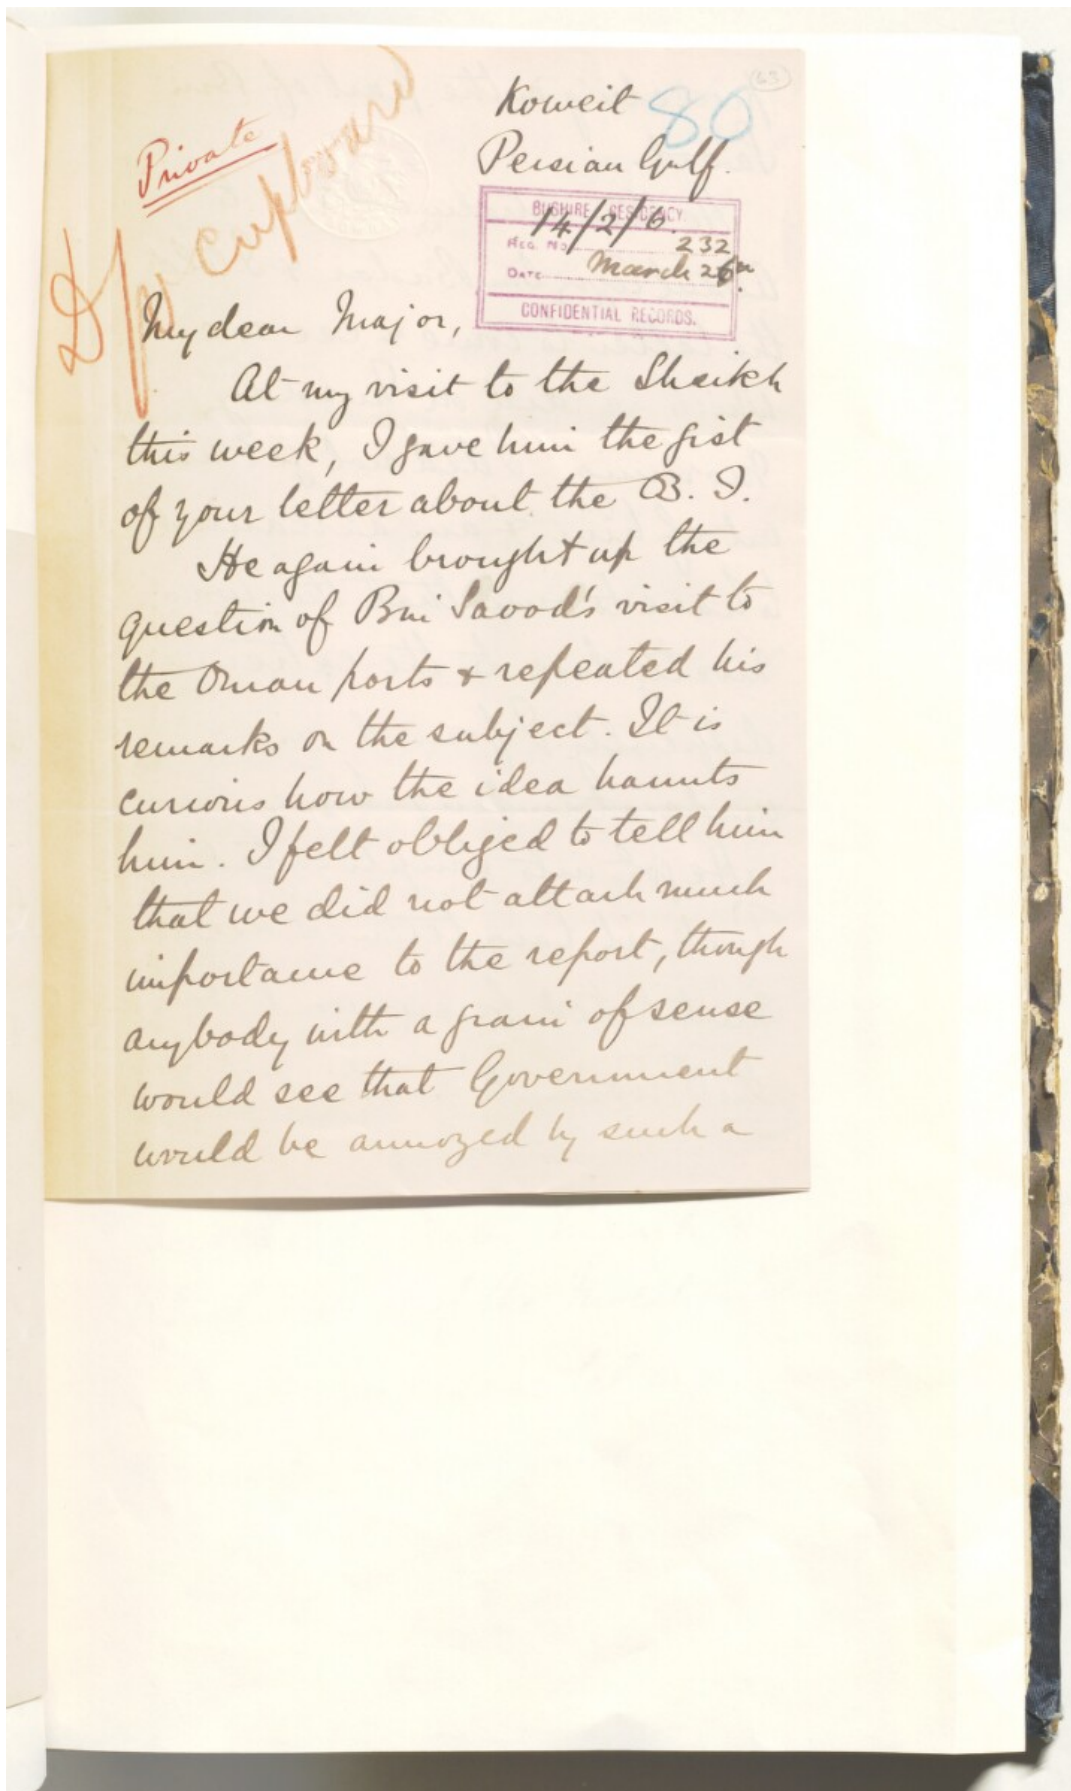 63
Koweit
80
Persian Gulf.
Private
Cupboard
BUSHIRE RESIDENCY
14/2/6.
REG. No. 232
DATE March 26th
CONFIDENTIAL RECORDS.
My dear Major,
At my visit to the Sheikh
this week, I gave him the gist
of your letter about the B. I.
He again brought up the
question of Bin Saood's visit to
the Oman ports & repeated his
remarks on the subject. It is
curious how the idea haunts
him. I felt obliged to tell him
that we did not attach much
importance to the report, though
anybody with a grain of sense
would see that Government
would be annoyed by such a